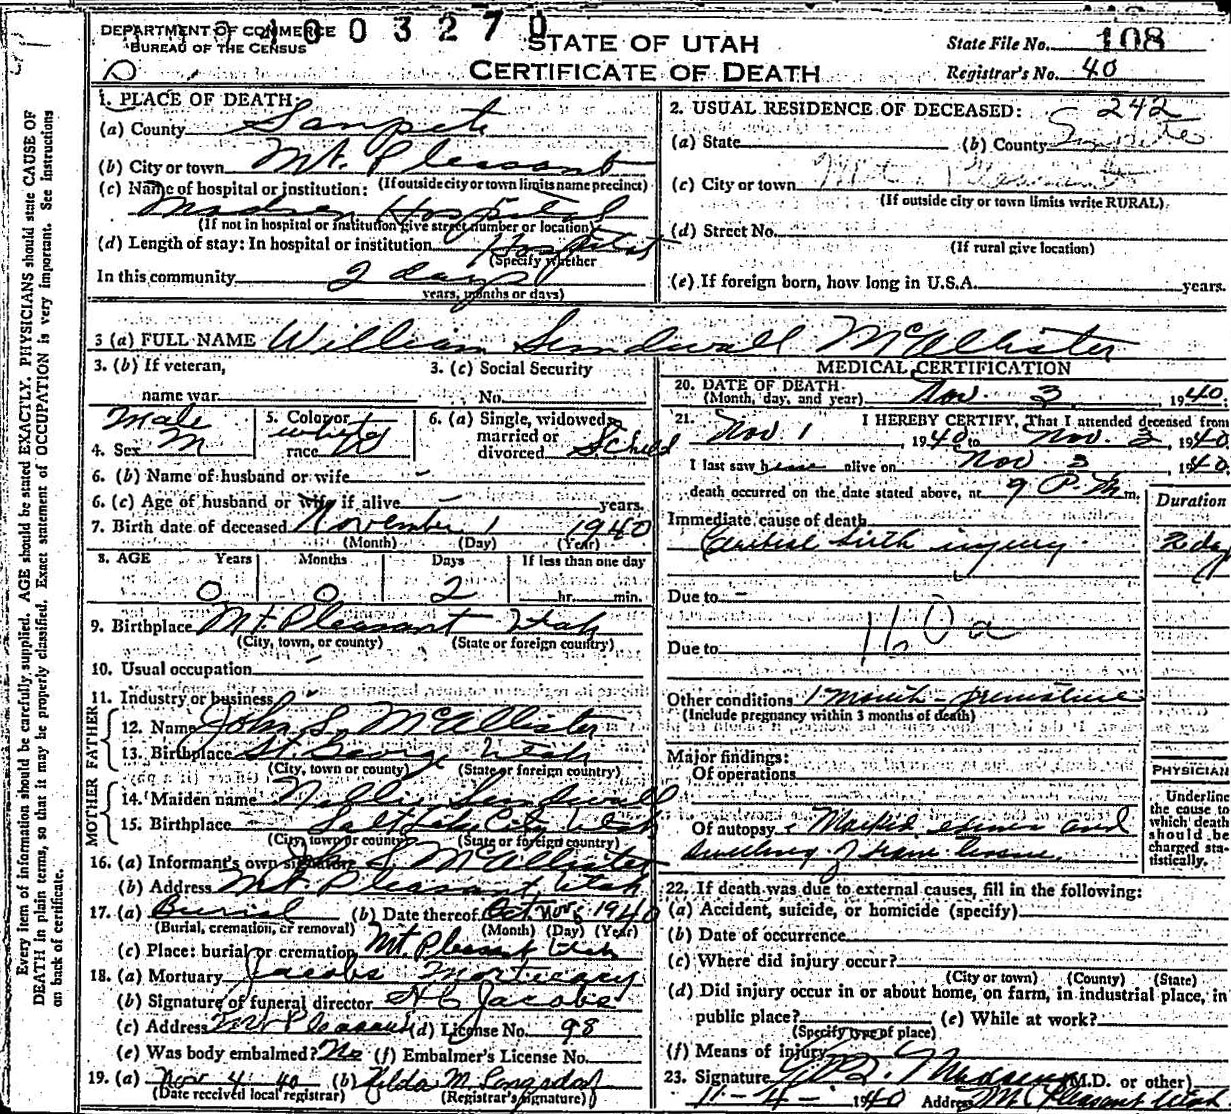 DEPARTMENT OF COMMERCE
BUREAU OF THE CENSUS
0 0 3 2 7 0
STATE OF UTAH
CERTIFICATE OF DEATH
State File No. 108
Registrar's No. 40
Every item of information should be carefully supplied. AGE should be stated EXACTLY. PHYSICIANS should state CAUSE OF
DEATH in plain terms, so that it may be properly classified. Exact statement of OCCUPATION is very important. See instructions
on back of certificate.
1. PLACE OF DEATH:
(a) County Sanpete
(b) City or town Mt. Pleasant
(If outside city or town limits name precinct)
(c) Name of hospital or institution:
Madsen Hospital
(If not in hospital or institution give street number or location)
(d) Length of stay: In hospital or institution Hospital
(Specify whether
In this community 2 days
years, months or days)
2. USUAL RESIDENCE OF DECEASED: 242
(a) State (b) County Sanpete
(c) City or town Mt. Pleasant
(If outside city or town limits write RURAL)
(d) Street No.
(If rural give location)
(e) If foreign born, how long in U.S.A. years.
3 (a) FULL NAME William Sendwall McAllister
3. (b) If veteran,
name war
3. (c) Social Security
No.
Male
4. Sex M
5. Color or
race white W
6. (a) Single, widowed,
married or
divorced S child
6. (b) Name of husband or wife -
6. (c) Age of husband or wife if alive - years.
7. Birth date of deceased November 1 1940
(Month) (Day) (Year)
8. AGE Years Months Days If less than one day
0 0 2 hr. min.
9. Birthplace Mt. Pleasant Utah
(City, town, or county) (State or foreign country)
10. Usual occupation -
11. Industry or business -
FATHER
12. Name John S. McAllister
13. Birthplace St. George Utah
(City, town or county) (State or foreign country)
MOTHER
14. Maiden name Nellie Sendwall
15. Birthplace Salt Lake City Utah
(City, town or county) (State or foreign country)
16. (a) Informant's own signature S McAllister
(b) Address Mt. Pleasant, Utah
17. (a) Burial (b) Date thereof Oct Nov. 5 1940
(Burial, cremation, or removal) (Month) (Day) (Year)
(c) Place: burial or cremation Mt. Pleasant Utah
18. (a) Mortuary Jacobs Mortuary
(b) Signature of funeral director H C Jacobs
(c) Address Mt Pleasant (d) License No. 98
(e) Was body embalmed? No (f) Embalmer's License No.
19. (a) Nov 4 40 (b) Hilda M. Longsdorf
(Date received local registrar) (Registrar's signature)
MEDICAL CERTIFICATION
20. DATE OF DEATH
(Month, day, and year) Nov. 3, 1940.
21. I HEREBY CERTIFY, That I attended deceased from
Nov 1 1940 to Nov. 3, 1940.
I last saw him alive on Nov 3 1940.
death occurred on the date stated above, at 9 P.M. m.
Duration
Immediate cause of death
Cerebral birth injury 2 day
Due to -
160a
Due to
Other conditions 1 month - premature
(Include pregnancy within 3 months of death)
Major findings:
Of operations
Of autopsy Marked edema and
swelling of brain tissue.
PHYSICIAN
Underline
the cause to
which death
should be
charged sta-
tistically.
22. If death was due to external causes, fill in the following:
(a) Accident, suicide, or homicide (specify)
(b) Date of occurrence
(c) Where did injury occur?
(City or town) (County) (State)
(d) Did injury occur in or about home, on farm, in industrial place, in
public place? (e) While at work?
(Specify type of place)
(f) Means of injury
23. Signature Madsen (M.D. or other)
11-4- 1940 Address Mt Pleasant Utah